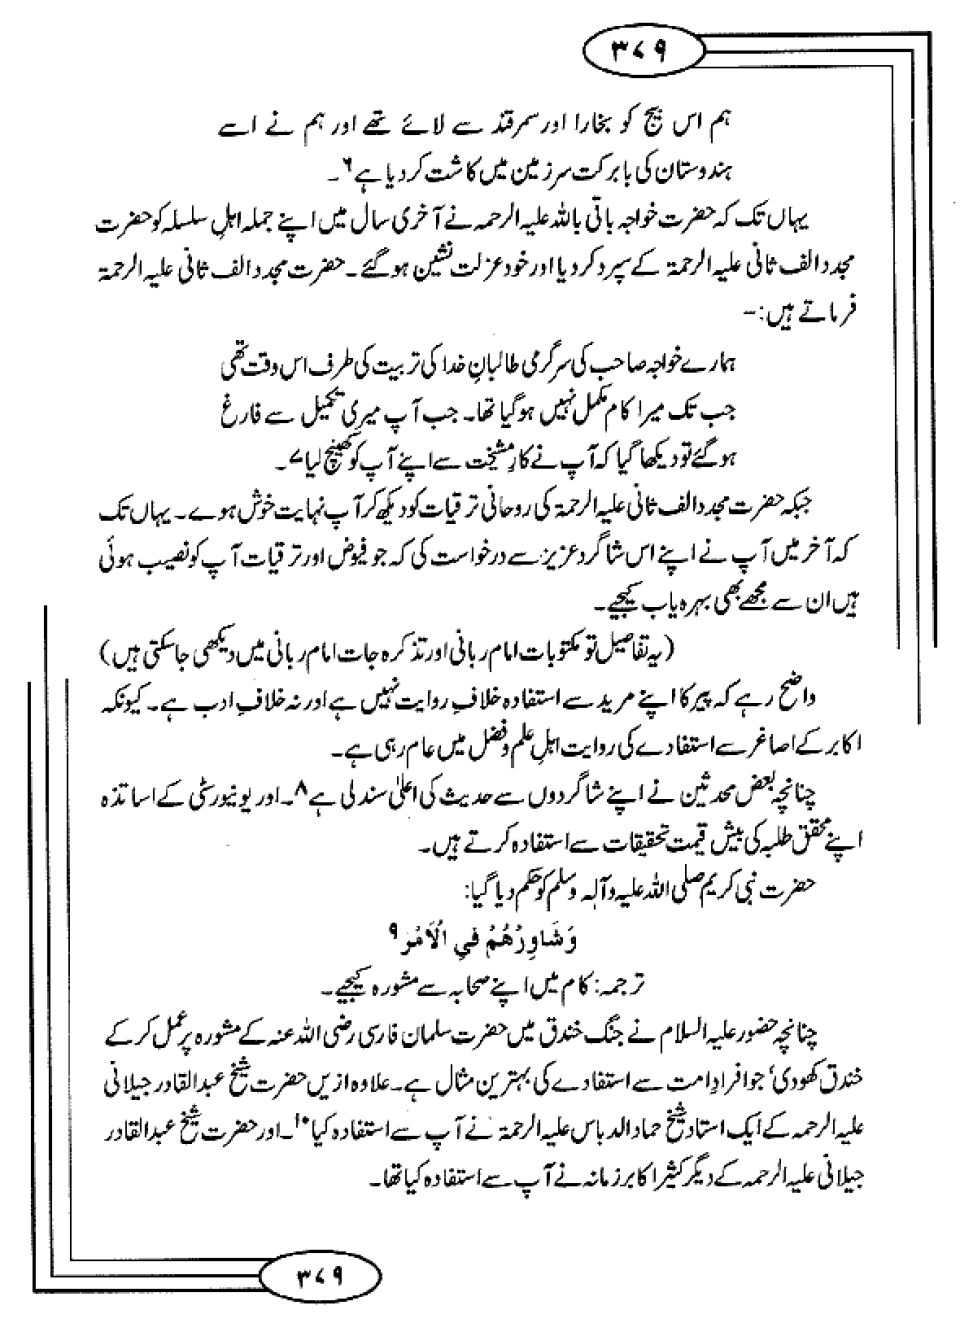 ۳۷۹
ہم اس بیج کو بخارا اور سمرقند سے لائے تھے اور ہم نے اسے
ہندوستان کی بابرکت سرزمین میں کاشت کردیا ہے۶۔
یہاں تک کہ حضرت خواجہ باقی باللہ علیہ الرحمہ نے آخری سال میں اپنے جملہ اہلِ سلسلہ کو حضرت
مجدد الف ثانی علیہ الرحمۃ کے سپرد کردیا اور خود عزلت نشین ہوگئے۔ حضرت مجدد الف ثانی علیہ الرحمۃ
فرماتے ہیں:-
ہمارے خواجہ صاحب کی سرگرمی طالبانِ خدا کی تربیت کی طرف اس وقت تھی
جب تک میرا کام مکمل نہیں ہوگیا تھا۔ جب آپ میری تکمیل سے فارغ
ہوگئے تو دیکھا گیا کہ آپ نے کارِ مشیخت سے اپنے آپ کو کھینچ لیا۷۔
جبکہ حضرت مجدد الف ثانی علیہ الرحمۃ کی روحانی ترقیات کو دیکھ کر آپ نہایت خوش ہوے۔ یہاں تک
کہ آخر میں آپ نے اپنے اس شاگرد عزیز سے درخواست کی کہ جو فیوض اور ترقیات آپ کو نصیب ہوئی
ہیں ان سے مجھے بھی بہرہ یاب کیجیے۔
(یہ تفاصیل تو مکتوبات امام ربانی اور تذکرہ جات امام ربانی میں دیکھی جاسکتی ہیں)
واضح رہے کہ پیر کا اپنے مرید سے استفادہ خلافِ روایت نہیں ہے اور نہ خلافِ ادب ہے۔ کیونکہ
اکابر کے اصاغر سے استفادے کی روایت اہلِ علم و فضل میں عام رہی ہے۔
چنانچہ بعض محدثین نے اپنے شاگردوں سے حدیث کی اعلیٰ سند لی ہے۸۔ اور یونیورسٹی کے اساتذہ
اپنے محقق طلبہ کی بیش قیمت تحقیقات سے استفادہ کرتے ہیں۔
حضرت نبی کریم صلی اللہ علیہ وآلہ وسلم کو حکم دیا گیا:
وَشَاوِرْهُمْ فِي الْاَمْرِ ۹
ترجمہ: کام میں اپنے صحابہ سے مشورہ کیجیے۔
چنانچہ حضور علیہ السلام نے جنگ خندق میں حضرت سلمان فارسی رضی اللہ عنہ کے مشورہ پر عمل کرکے
خندق کھودی، جو افرادِ امت سے استفادے کی بہترین مثال ہے۔ علاوہ ازیں حضرت شیخ عبدالقادر جیلانی
علیہ الرحمہ کے ایک استاد شیخ حماد الدباس علیہ الرحمۃ نے آپ سے استفادہ کیا۱۰۔ اور حضرت شیخ عبدالقادر
جیلانی علیہ الرحمہ کے دیگر کثیر اکابر زمانہ نے آپ سے استفادہ کیا تھا۔
۳۷۹